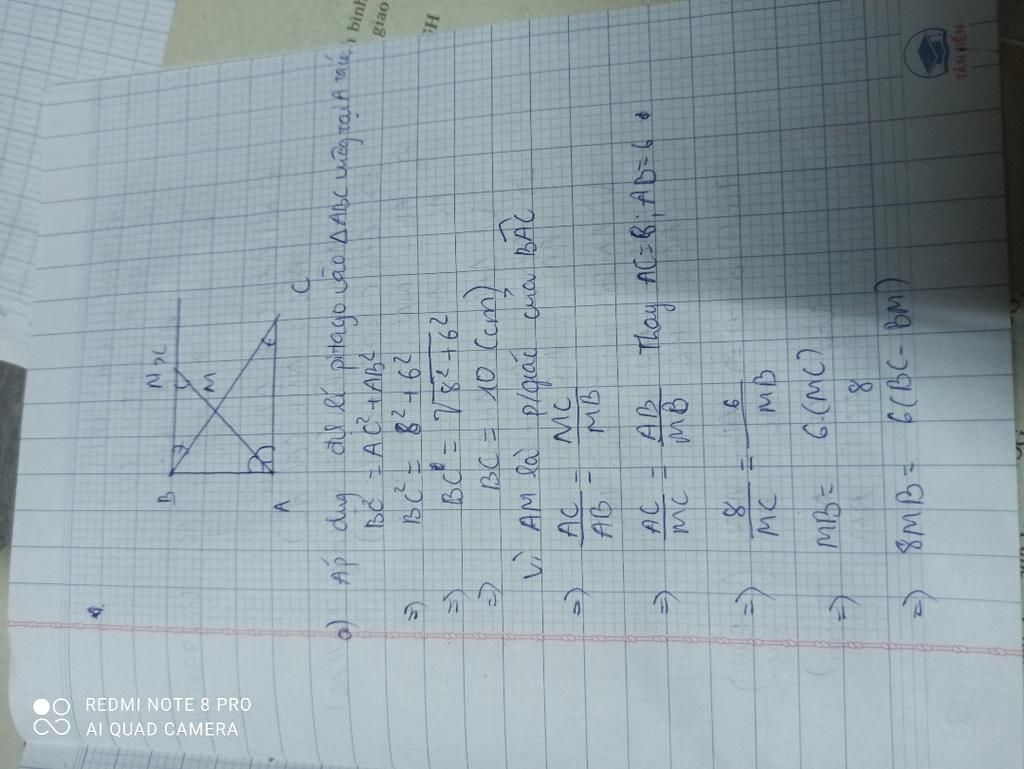 bình
giao
GH
TÂN TIẾN
B
N x
M
A
C
a) Áp dụng đlí pitago vào ΔABC vuông tại A
BC² = AC² + AB²
=) BC² = 8² + 6²
=) BC = √8² + 6²
=) BC = 10 (cm)
Vì AM là p/giác của BAC
=) AC/AB = MC/MB
=) AC/MC = AB/MB Thay AC = 8; AB = 6
=) 8/MC = 6/MB
=) MB = 6.(MC)/8
=) 8MB = 6(BC - BM)
REDMI NOTE 8 PRO
AI QUAD CAMERA